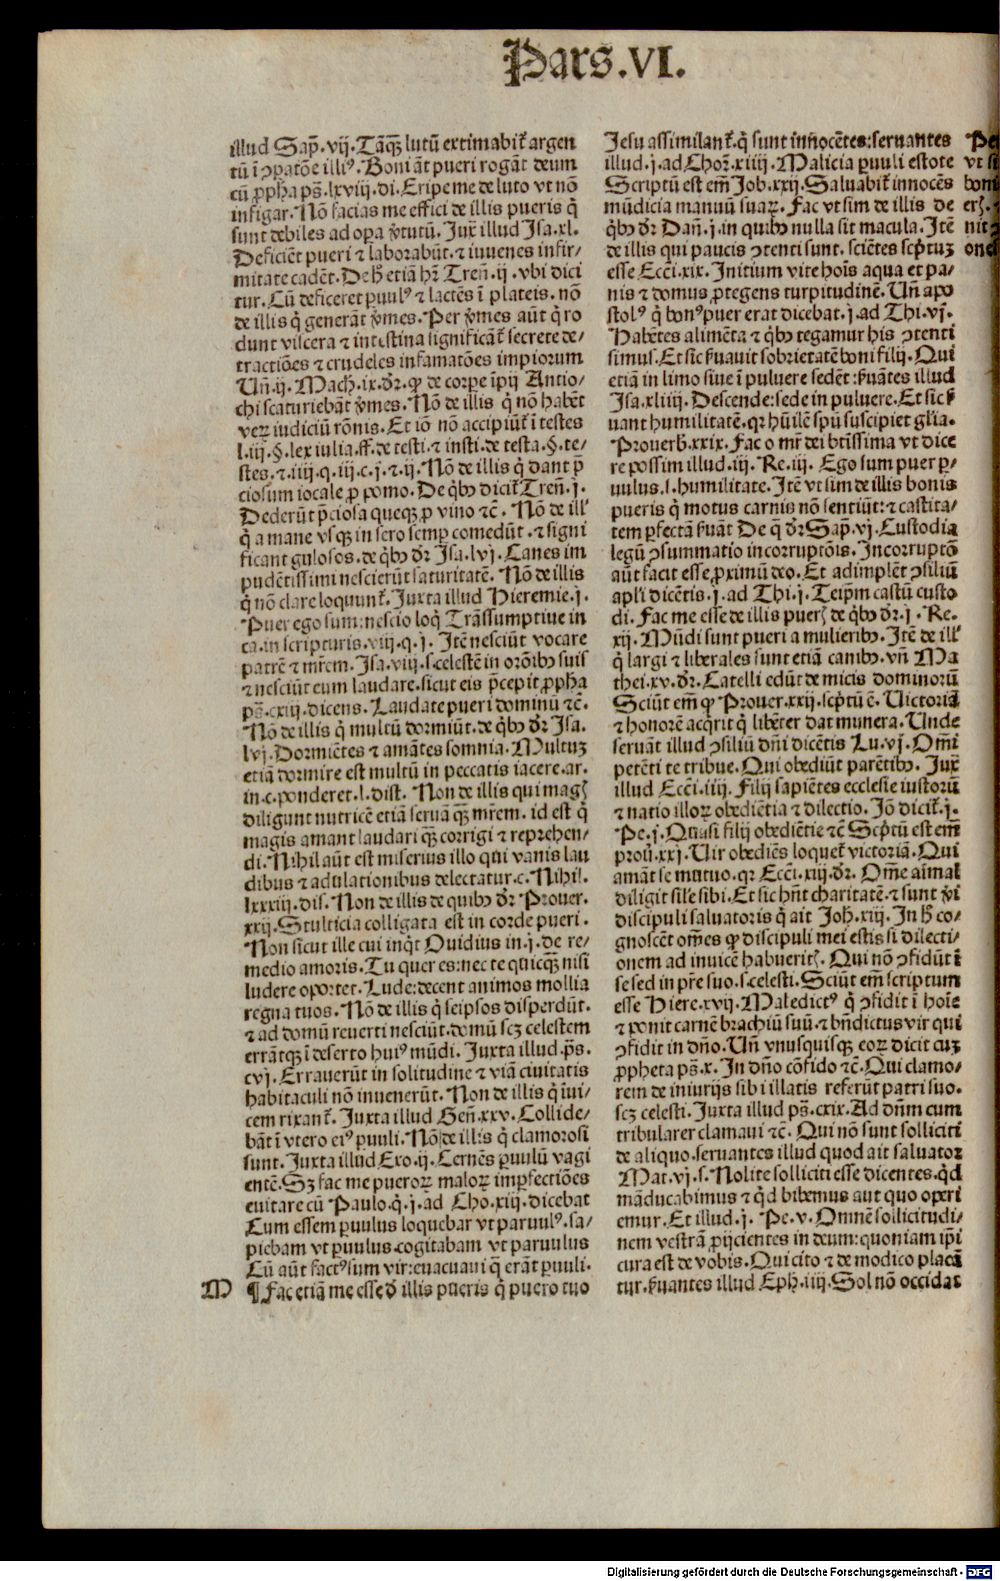 Pars.VI.
illud Sap̄.vij.Tāq̄ꝫ lutū extimabit᷑ argen
tū ī ꝯꝑatōe illiꝰ.Boni āt pueri rogāt deum
cū ꝓpha ps̄.lxviij.di.Eripe me de luto vt nō
infigar.Nō facias me effici de illis pueris q̇
sunt debiles ad oꝑa v̓tutū.Jux̄ illud Isa.xl.
Deficiēt pueri ⁊ laborabūt.⁊ iuuenes infir/
mitate cadēt.De h̄ etiā hr̄ Tren̄.ij.vbi dici
tur.Cū deficeret ꝑuulꝰ ⁊ lactēs ī plateis.nō
de illis q̇ generāt v̓mes.Per v̓mes aūt q̇ ro
dunt viscera ⁊ intestina significāt᷑ secrete de/
tractiōes ⁊ crudeles infamatōes impiorum
Un̄.ij.Mach̄.ix.dr̄.ꝙ de corꝑe īpij Antio/
chi scaturiebāt v̓mes.Nō de illis q̇ nō habēt
veꝝ iudiciū rōnis.Et iō nō accipiūt᷑ ī testes
l.iij.§.lex iulia.ff.de testi.⁊ insti.de testa.§.te/
stes.⁊.iiij.q.iij.c.j.⁊.ij.Nō de illis q̇ dant p̄
ciosum iocale ꝓ pomo.De q̇bꝫ dicit᷑ Tren̄.j.
Dederūt p̄ciosa queqꝫ ꝓ vino ⁊c̄.Nō de ill'
q̇ a mane vsqꝫ in sero semꝑ comedūt.⁊ signi
ficant gulosos.de q̇bꝫ dr̄ Isa.lvj.Canes im
pudētissimi nescierūt saturitatē.Nō de illis
q̇ nō clare loquunt᷑.Juxta illud Hieremie.j.
Puer ego sum:nescio loq̇ Trāssumptiue in
ca.in scripturis.viij.q.j.Itē nesciūt vocare
patrē ⁊ mr̄em.Isa.viij.s.celestē in orōibꝫ suis
⁊ nesciūt eum laudare.sicut eis p̄cepit ꝓpha
ps̄.cxiij.dicens.Laudate pueri dominū ⁊c̄.
Nō de illis q̇ multū dormiūt.de q̇bꝫ dr̄ Isa.
lvj.Dormiētes ⁊ amātes somnia.Multuꝫ
etiā dormire est multū in peccatis iacere.ar.
in.c.ponderet.l.dist.Non de illis qui magꝭ
diligunt nutricē etiā seruā q̄ꝫ mr̄em.id est q̇
magis amant laudari q̄ꝫ corrigi ⁊ reprehen/
di.Nihil aūt est miserius illo qui vanis lau
dibus ⁊ adulationibus delectatur.c.Nihil.
lxxxiij.dis.Non de illis de quibꝫ dr̄ Prouer.
xxij.Stulticia colligata est in corde pueri.
Non sicut ille cui inq̇t Ouidius in.j.de re/
medio amoris.Tu quer es:nec te quicq̄ꝫ nisi
ludere oportet.Lude:decent animos mollia
regna tuos.Nō de illis q̇ seipsos disperdūt.
⁊ ad domū reuerti nesciūt.domū scꝫ celestem
errātqꝫ ī deserto huiꝰ mūdi.Juxta illud.ps̄.
cvj.Errauerūt in solitudine ⁊ viā ciuitatis
habitaculi nō inuenerūt.Non de illis q̇ īui/
cem rixant᷑.Juxta illud Gen̄.xxv.Collide/
bāt ī vtero eiꝰ puuli.Nō de illis q̇ clamorosi
sunt.Juxta illud Exo.ij.Cernēs ꝑuulū vagi
entē.Sꝫ fac me pueroꝝ maloꝝ imꝑfectiōes
euitare cū Paulo.q̇.j.ad Cho.xiij.dicebat
Cum essem ꝑuulus loquebar vt paruulꝰ.sa/
piebam vt ꝑuulus.cogitabam vt paruulus
Cū aūt factꝰ sum vir:euacuaui q̄ erāt ꝑuuli.
M ¶ Fac etiā me esse d̓ illis pueris q̇ puero tuo
Jesu assimilant᷑.q̇ sunt innocētes:seruantes
illud.j.ad Choꝝ.xiiij.Malicia ꝑuuli estote
Scriptū est em̄ Job.xxij.Saluabit᷑ innocēs
mūdicia manuū suaꝝ.Fac vt sim de illis de
q̇bꝫ dr̄ Dan̄.j.in quibꝫ nulla sit macula.Itē
de illis qui paucis ꝯtenti sunt.sciētes scp̄tuꝫ
esse Eccī.xix.Initium vite hoīs aqua et pa/
nis ⁊ domus ꝓtegens turpitudinē.Un̄ apo
stolꝰ q̇ bonꝰ puer erat dicebat.j.ad Thi.vj.
Habētes alimēta ⁊ q̇bꝫ tegamur his ꝯtenti
simus.Et sic ẜuauit sobrietatē boni filij.Qui
etiā in limo siue ī puluere sedēt:ẜuātes illud
Isa.xliiij.Descende:sede in puluere.Et sic ẜ
uant humilitatē.qr hūilē spū suscipiet gl'ia.
Prouerb̄.xxix.Fac o mr̄ dei btīssima vt dice
re possim illud.iij.Re.iij.Ego sum puer ꝑ/
uulus.s.humilitate.Itē vt sim de illis bonis
pueris q̇ motus carnis nō sentiūt:⁊ castita/
tem ꝑfectā ẜuāt De q̄ dr̄ Sap̄.vj.Custodia
legū ꝯsummatio incorruptōis.Incorruptō
aūt facit esse ꝓximū deo.Et adimplēt ꝯsiliū
apl'i dicētis.j.ad Thi.j.Teip̄m castū custo
di.Fac me esse de illis puerꝭ de q̇bꝫ dr̄.j.Re.
xij.Mūdi sunt pueri a mulieribꝫ.Itē de ill'
q̇ largi ⁊ liberales sunt etiā canibꝫ.vn̄ Ma
thei.xv.dr̄.Catelli edūt de micis dominorū
Sciūt em̄ ꝙ Prouer.xxij.scp̄tū ē.Uictoriā
⁊ honorē acq̇rit q̇ libēter dat munera.Unde
seruāt illud ꝯsiliū dn̄i dicētis Lu.vj.Om̄i
petēti te tribue.Qui obediūt parētibꝫ.Jux̄
illud Eccī.iiij.Filij sapiētes ecclesie iustorū
⁊ natio illoꝝ obediētia ⁊ dilectio.Iō dicit᷑.j.
Pe.j.Quasi filij obediētie ⁊c̄ Scp̄tū est em̄
proū.xxj.Uir obediēs loquet᷑ victoriā.Qui
amāt se mutuo.qr Eccī.xiij.dr̄.Om̄e aīmal
diligit sil'e sibi.Et sic hn̄t charitatē.⁊ sunt v̓i
discipuli saluatoris q̇ ait Joh̄.xiij.In h̄ co/
gnoscēt om̄es ꝙ discipuli mei estis si dilecti/
onem ad inuicē habueritꝭ.Qui nō ꝯfidūt ī
se sed in pr̄e suo.s.celesti.Sciūt em̄ scriptum
esse Hiere.xvij.Maledictꝰ q̇ ꝯfidit ī hoīe
⁊ ponit carnē brachiū suū.⁊ bn̄dictus vir qui
ꝯfidit in dn̄o.Un̄ vnusquisqꝫ eoꝝ dicit cuꝫ
ꝓpheta ps̄.x.In dn̄o cōfido ⁊c̄.Qui clamo/
rem de iniurijs sibi illatis referūt patri suo.
scꝫ celesti.Juxta illud ps̄.cxix.Ad dn̄m cum
tribularer clamaui ⁊c̄.Qui nō sunt solliciti
de aliquo.seruantes illud quod ait saluator
Mat.vj.s.Nolite solliciti esse dicentes.q̇d
māducabimus ⁊ q̇d bibemus aut quo oꝑi
emur.Et illud.j.Pe.v.Omnē sollicitudi/
nem vestrā ꝓijcientes in deum:quoniam ip̄i
cura est de vobis.Qui cito ⁊ de modico placā
tur.ẜuantes illud Eph̄.iiij.Sol nō occidat
vt si
boni
nit
ones
Digitalisierung gefördert durch die Deutsche Forschungsgemeinschaft - DFG